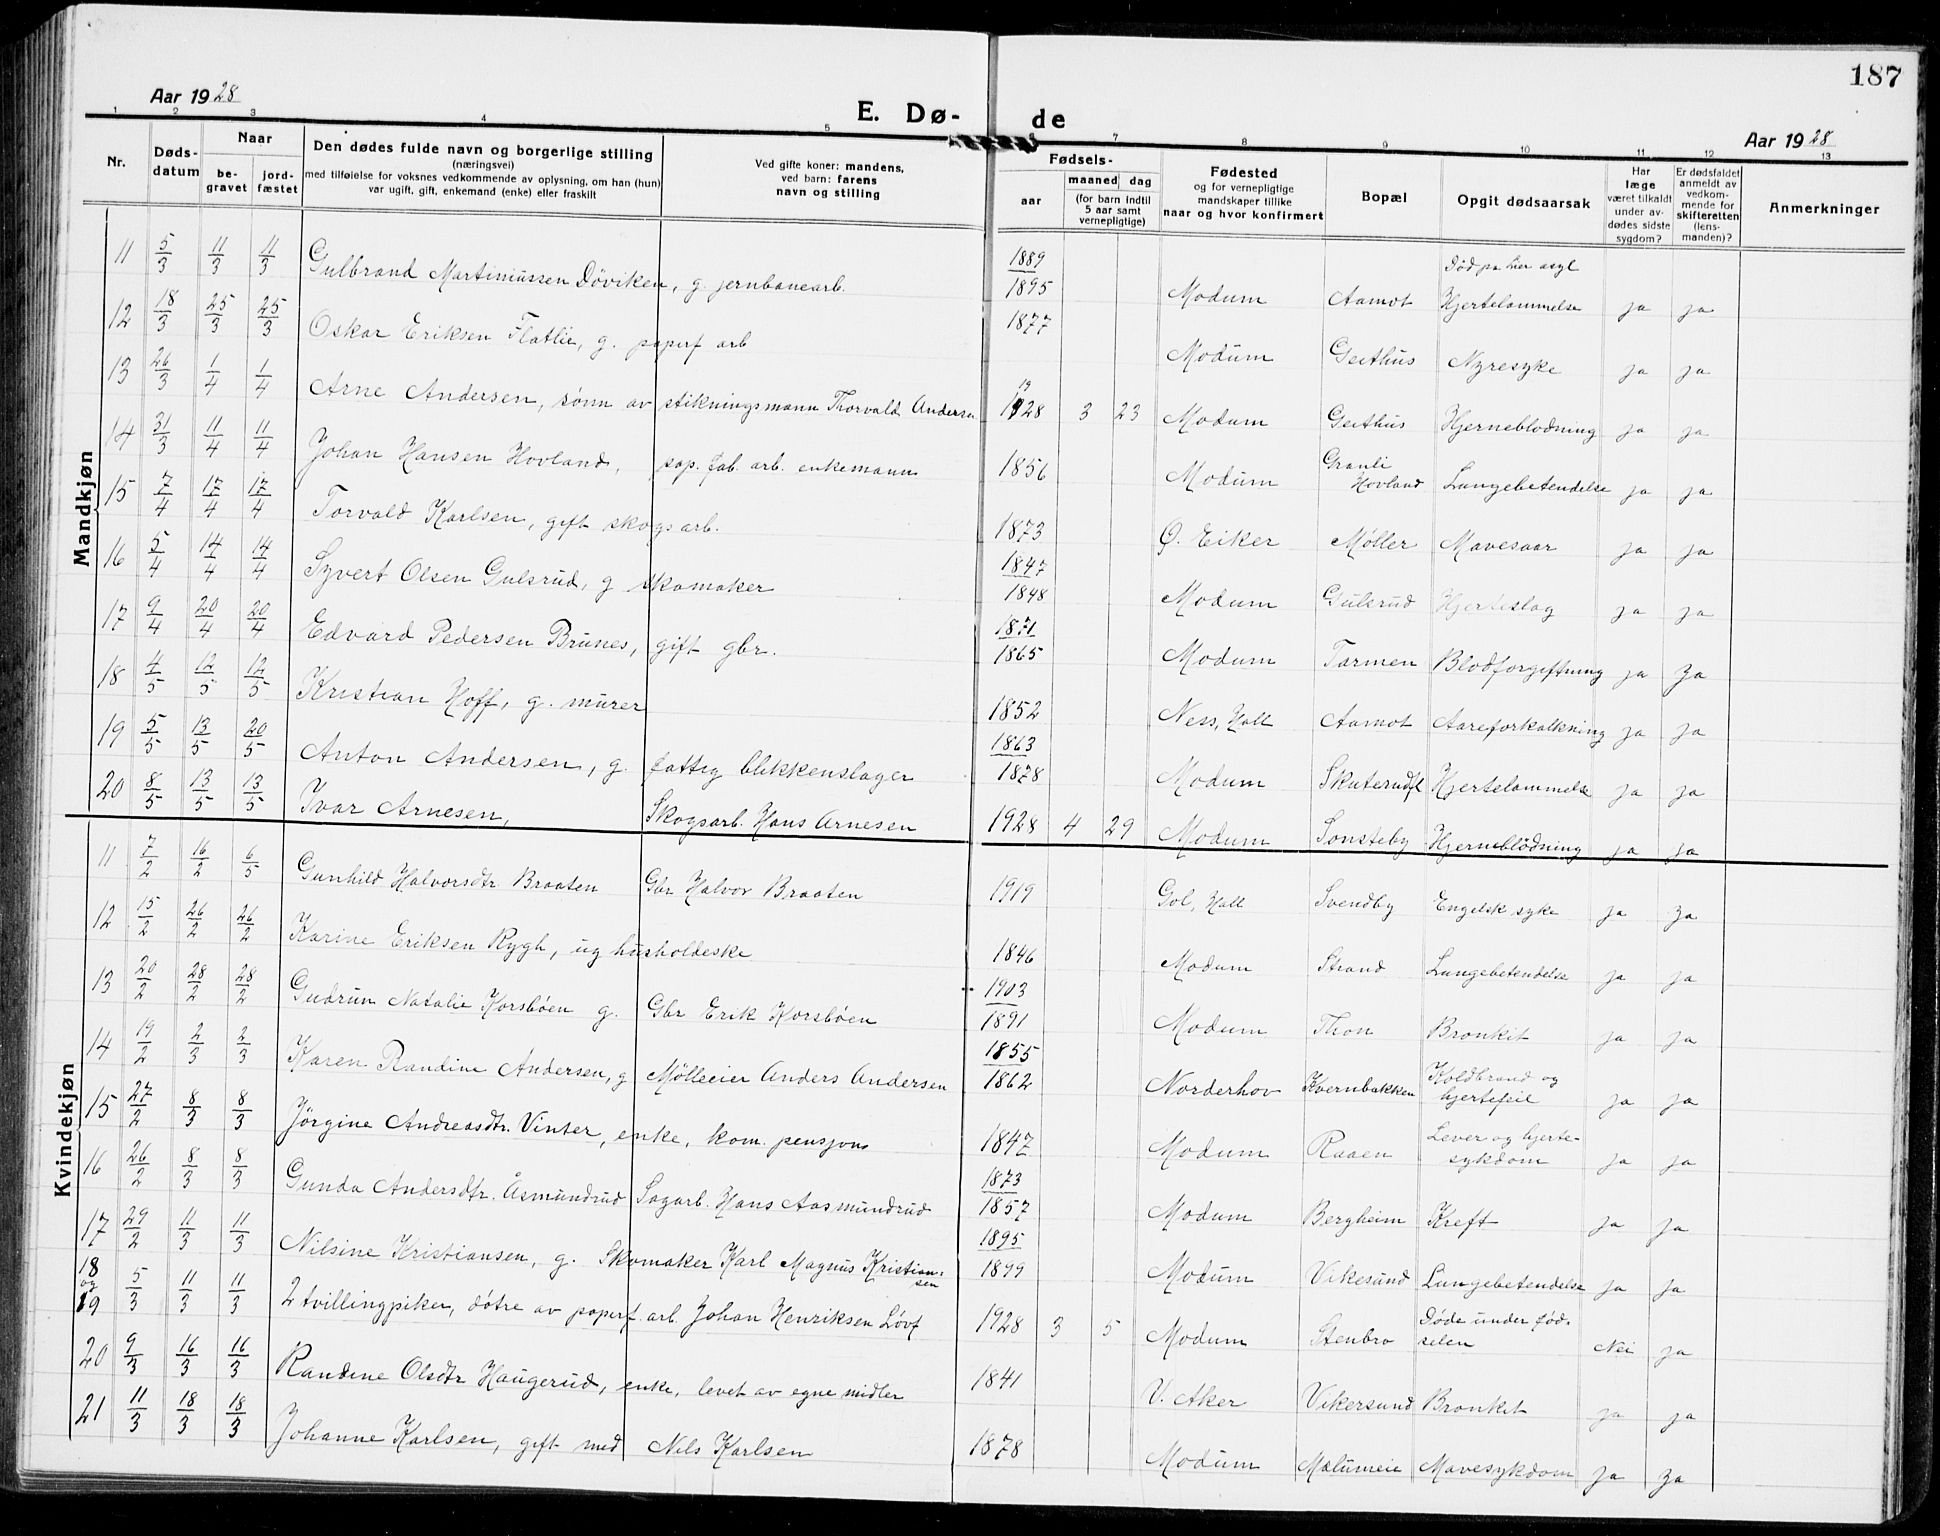 187
Aar 1928
E. Dø-
de
Aar 1928
1 2 3 4 5 6 7 8 9 10 11 12 13
Nr.
Døds-
datum
Naar
be-
gravet
jord-
fæstet
Den dødes fulde navn og borgerlige stilling
(næringsvei)
med tilføielse for voksnes vedkommende av oplysning, om han (hun)
var ugift, gift, enkemand (enke) eller fraskilt
Ved gifte koner: mandens,
ved barn: farens
navn og stilling
Fødsels-
aar
maaned dag
(for barn indtil
5 aar samt
vernepligtige)
Fødested
og for vernepligtige
mandskaper tillike
naar og hvor konfirmert
Bopæl
Opgit dødsaarsak
Har
læge
været tilkaldt
under av-
dødes sidste
sygdom?
Er dødsfaldet
anmeldt av
vedkom-
mende for
skifteretten
(lens-
manden)?
Anmerkninger
Mandkjøn
11 5/3 11/3 11/3 Gulbrand Martiniussen Döviken, g. jernbanearb. 1889 1895 Modum Aamot Död paa Lier asyl Hjertelammelse ja ja
12 18/3 25/3 25/3 Oskar Eriksen Flatlie, g. paperf arb 1877 Modum Geithus Nyresyke ja ja
13 26/3 1/4 1/4 Arne Andersen, sönn av stikningsmann Thorvald Andersen 1928 3 23 Modum Geithus Hjerneblödning ja ja
14 31/3 11/4 11/4 Johan Hansen Hovland, pap. fab. arb. enkemann 1856 Modum Granli Hovland Lungebetendelse ja ja
15 7/4 17/4 17/4 Torvald Karlsen, gift skogsarb. 1873 Ø. Eiker Møller Mavesaar ja ja
16 5/4 14/4 14/4 Syvert Olsen Gulsrud, g skomaker 1847 1848 Modum Gulsrud Hjerteslag ja ja
17 9/4 20/4 20/4 Edvard Pedersen Brunes, gift gbr. 1871 1865 Modum Tormen Blodforgiftning ja ja
18 4/5 12/5 12/5 Kristian Hoff, g. murer 1852 Ness, Hall Aamot Aareforkalkning ja ja
19 5/5 13/5 20/5 Anton Andersen, g. fattig blikkenslager 1863 1878 Modum Skuterudfl Hjertelammelse ja ja
20 8/5 13/5 13/5 Ivar Arnesen, Skogsarb. Hans Arnesen 1928 4 29 Modum Sönsteby Hjerneblödning ja ja
Kvindekjøn
11 7/2 16/2 6/5 Gunhild Halvorsdtr Braaten Gbr Halvor Braaten 1919 Gol, Hall Svendby Engelsk syke ja ja
12 15/2 26/2 26/2 Karine Eriksen Rygh, ug husholdeske 1846 Modum Strand Lungebetendelse ja ja
13 20/2 28/2 28/2 Gudrun Natalie Korsböen g. Gbr Erik Korsböen 1903 1891 Modum Thon Bronkit ja ja
14 19/2 2/3 2/3 Karen Randine Andersen, g Mölleeier Anders Andersen 1855 1862 Norderhov Kvernbakken Koldbrand og hjertefeil ja ja
15 27/2 8/3 8/3 Jörgine Andreasdtr. Vinter, enke, kom. pensjon 1847 Modum Raaen Lever og hjerte- sykdom ja ja
16 26/2 8/3 8/3 Gunda Andersdtr. Åsmundrud Sagarb. Hans Aasmundrud 1873 1857 Modum Bergheim Kreft ja ja
17 29/2 11/3 11/3 Nilsine Kristiansen, g. Skomaker Karl Magnus Kristian- sen 1895 1899 Modum Vikesund Lungebetendelse ja ja
18 og 19 5/3 11/3 11/3 2 tvillingpiker, dötre av paperf. arb. Johan Henriksen Lövf 1928 3 5 Modum Stenbro Døde under fød- selen Nei ja
20 9/3 16/3 16/3 Randine Olsdtr Haugerud, enke, levet av egne midler 1841 V. Aker Vikersund Bronkit ja ja
21 11/3 18/3 18/3 Johanne Karlsen, gift med Nils Karlsen 1878 Modum Mælumeie Mavesykdom ja ja